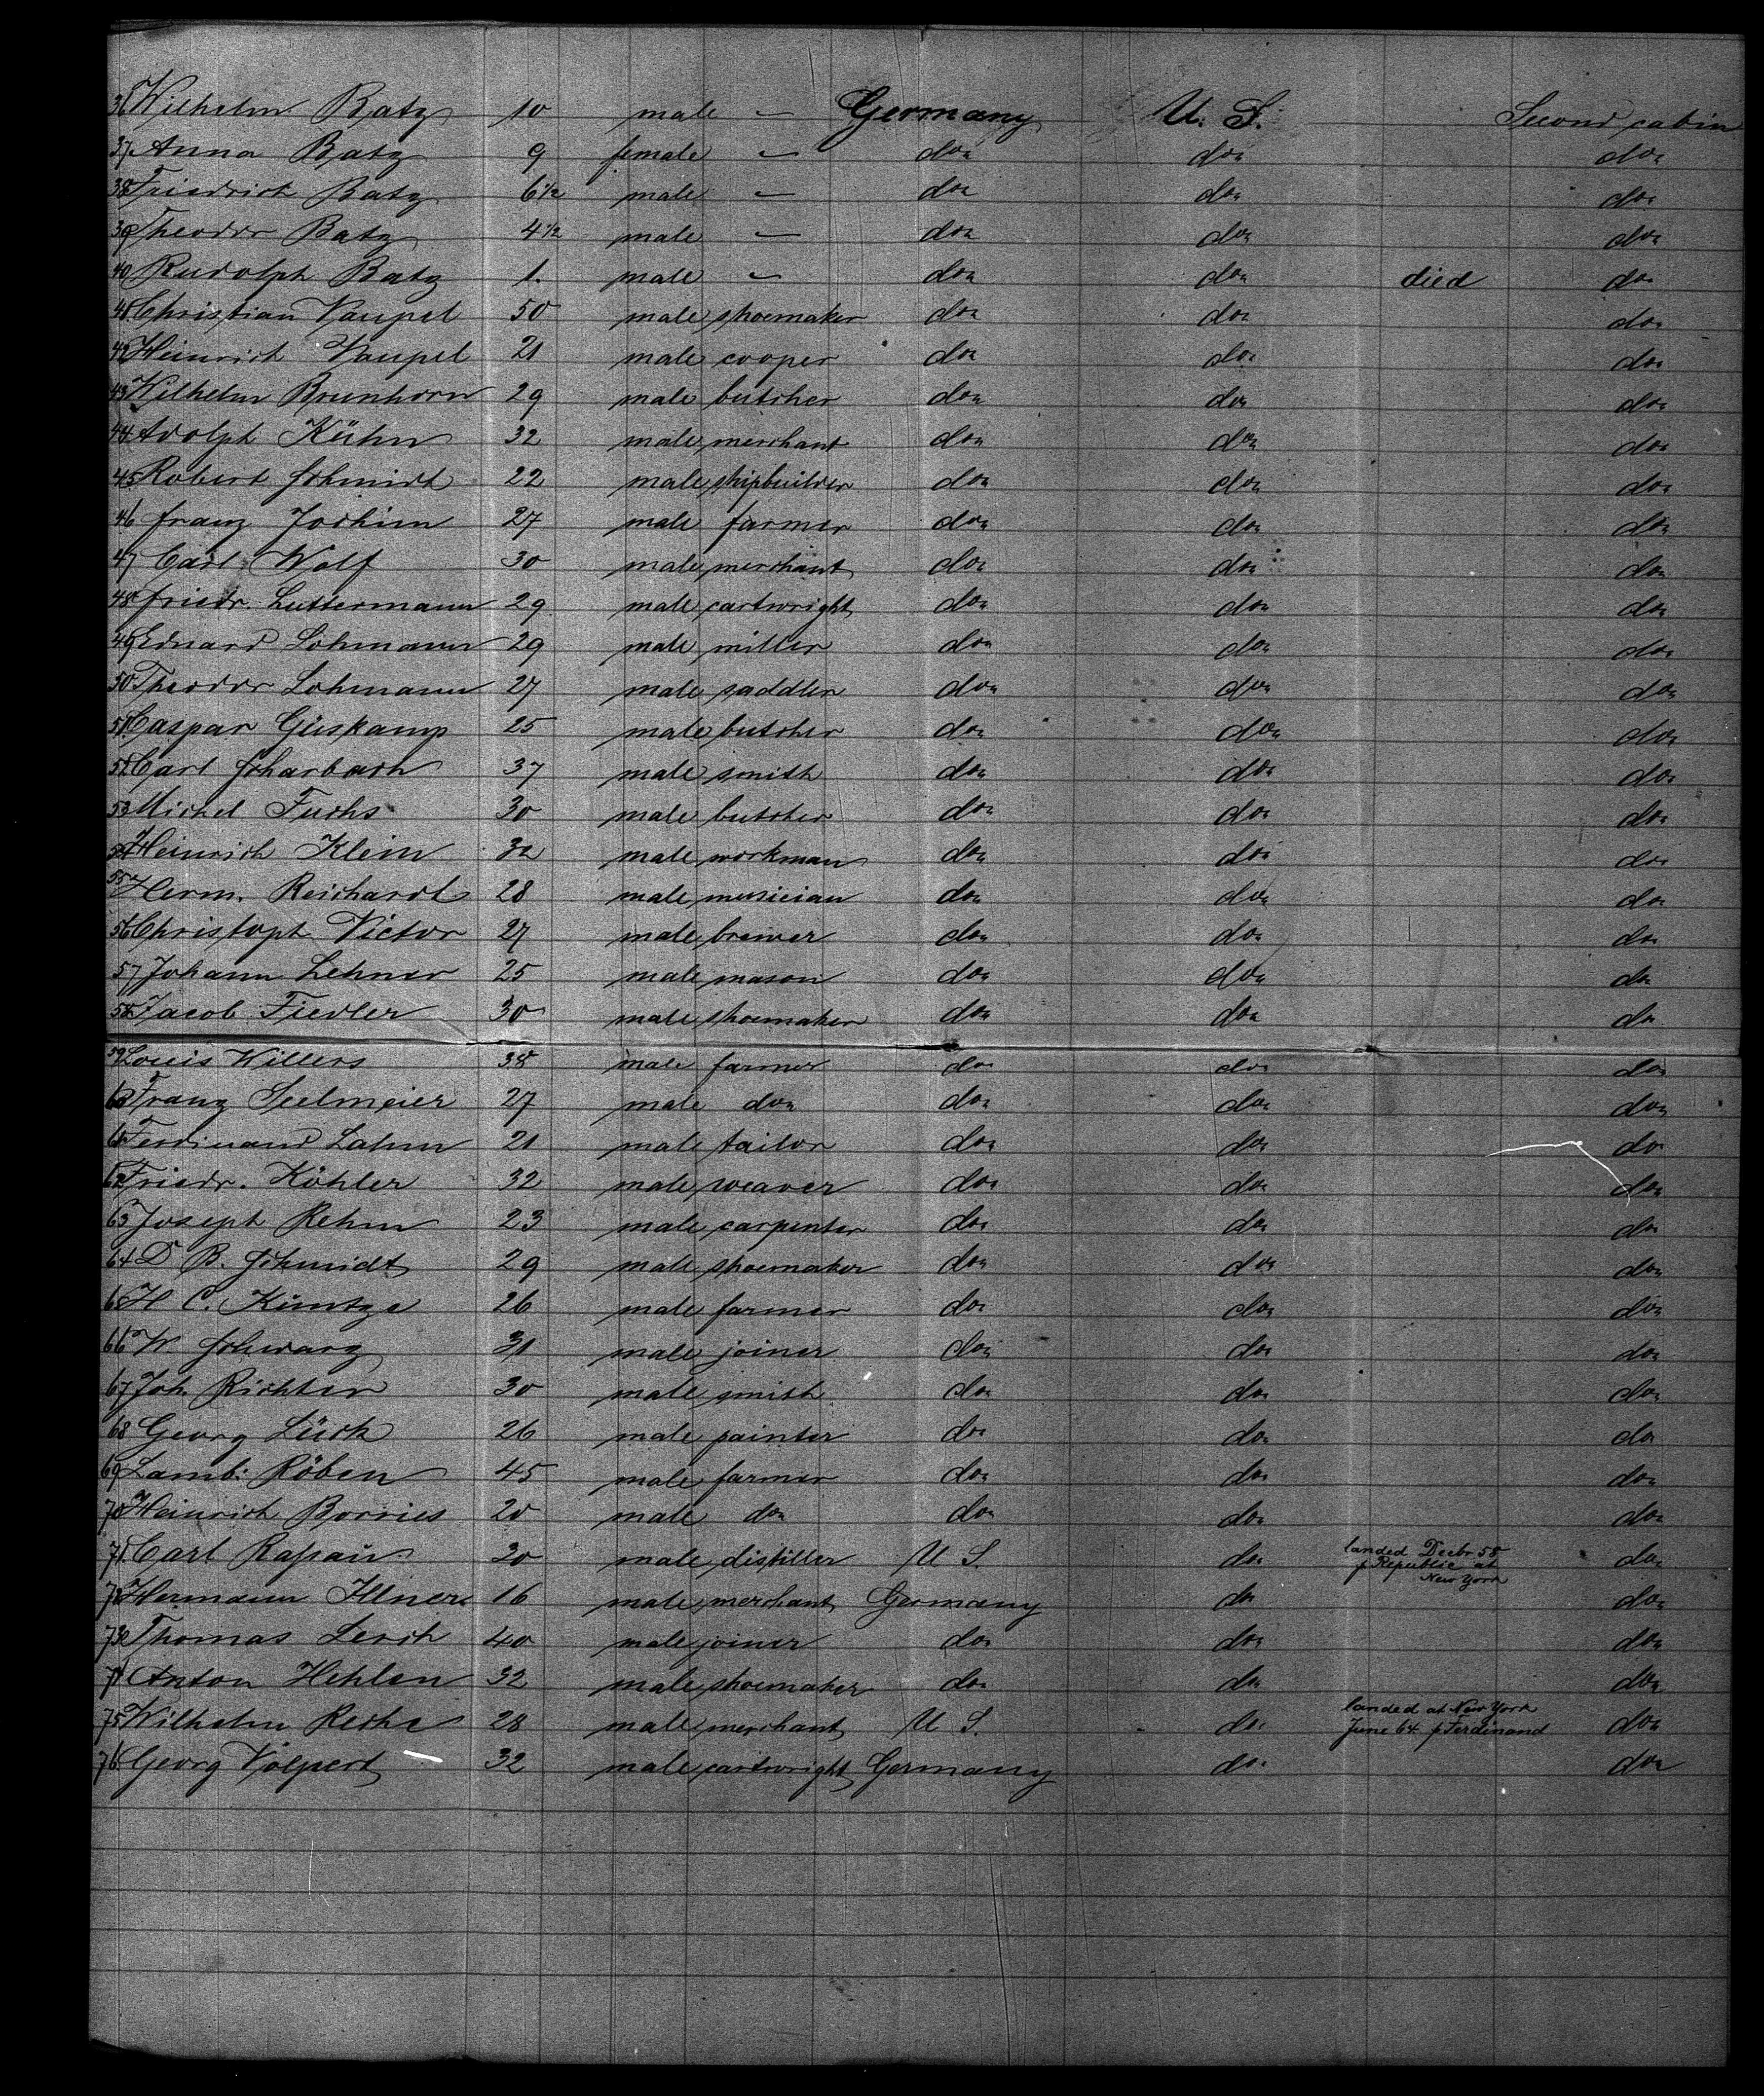 36 Wilhelm Batz 10 male — Germany U. S. Second cabin
37 Anna Batz 9 female — do. do. do.
38 Friedrich Batz 6 1/2 male — do. do. do.
39 Theodor Batz 4 1/2 male — do. do. do.
40 Rudolph Batz 1. male — do. do. died do.
41 Christian Vaupel 50 male shoemaker do. do. do.
42 Heinrich Vaupel 21 male cooper do. do. do.
43 Wilhelm Brunhorn 29 male butcher do. do. do.
44 Adolph Kühn 32 male merchant do. do. do.
45 Robert Schmidt 22 male shipbuilder do. do. do.
46 Franz Jochim 27 male farmer do. do. do.
47 Carl Wolf 30 male merchant do. do. do.
48 Friedr. Luttermann 29 male cartwright do. do. do.
49 Eduard Lohmann 29 male miller do. do. do.
50 Theodor Lohmann 27 male saddler do. do. do.
51 Caspar Giskamp 25 male butcher do. do. do.
52 Carl Scharbach 37 male smith do. do. do.
53 Michel Fuchs 30 male butcher do. do. do.
54 Heinrich Klein 32 male workman do. do. do.
55 Herm. Reichardt 28 male musician do. do. do.
56 Christoph Victor 27 male brewer do. do. do.
57 Johann Lehner 25 male mason do. do. do.
58 Jacob Fiedler 30 male shoemaker do. do. do.
59 Louis Willers 38 male farmer do. do. do.
60 Franz Seelmeier 27 male do. do. do. do.
61 Ferdinand Lahm 21 male tailor do. do. do
62 Friedr. Köhler 32 male weaver do. do. do.
63 Joseph Rehm 23 male carpenter do. do. do.
64 D B. Schmidt 29 male shoemaker do. do. do.
65 H C. Küntze 26 male farmer do. do. do.
66 W. Schwarz 31 male joiner do. do. do.
67 Joh. Richter 30 male smith do. do. do.
68 Georg Lück 26 male painter do. do. do
69 Lamb: Röben 45 male farmer do. do. do.
70 Heinrich Borries 20 male do. do. do. do.
71 Carl 30 male distiller U S. do. landed Decbr 58 do.
p Republic at
New York
72 Hermann Illner 16 male merchant Germany do. do.
73 Thomas Lerch 40 male joiner do. do. do.
74 Anton Hehlen 32 male shoemaker do. do. do.
75 Wilhelm Reche 28 male merchant U S. do. landed at New York do.
June 64 p Ferdinand
76 Georg Volpert 32 male cartwright Germany do. do.